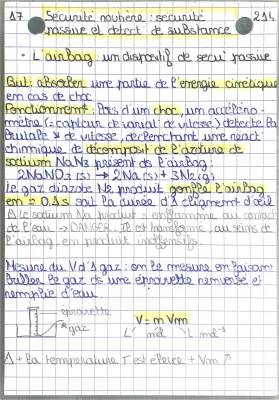 17 Securité routière : securité 214
passive et detect° de substance
- L'airbag : un dispositif de secu passive
But : absorber une partie de l'energie cinétique
en cas de choc
Fonctionnement : Lors d'un choc, un accéléro-
mètre (= capteur de variat° de vitesse) detecte la
brutale de vitesse, declenchant une react°
chimique de décomposit° de l'azoture de
sodium NaN3 présent ds l'airbag :
2NaN3 (s) → 2Na (s) + 3N2 (g)
Le gaz diazote N2 produit gonfle l'airbag
en ≈ 0,1s soit la durée d'1 clignemt d'oeil
Δ le sodium Na produit s'enflamme au contact
de l'eau → DANGER. Il est transformé, au sein de
l'airbag, en produit inoffensifs
Mesure du V d'1 gaz : on le mesure en faisant
buller le gaz ds une éprouvette renversée et
remplie d'eau.
eprouvette
gaz
V = n Vm
L mol L.mol-1
Δ + la temperature T est élevée + Vm ↗